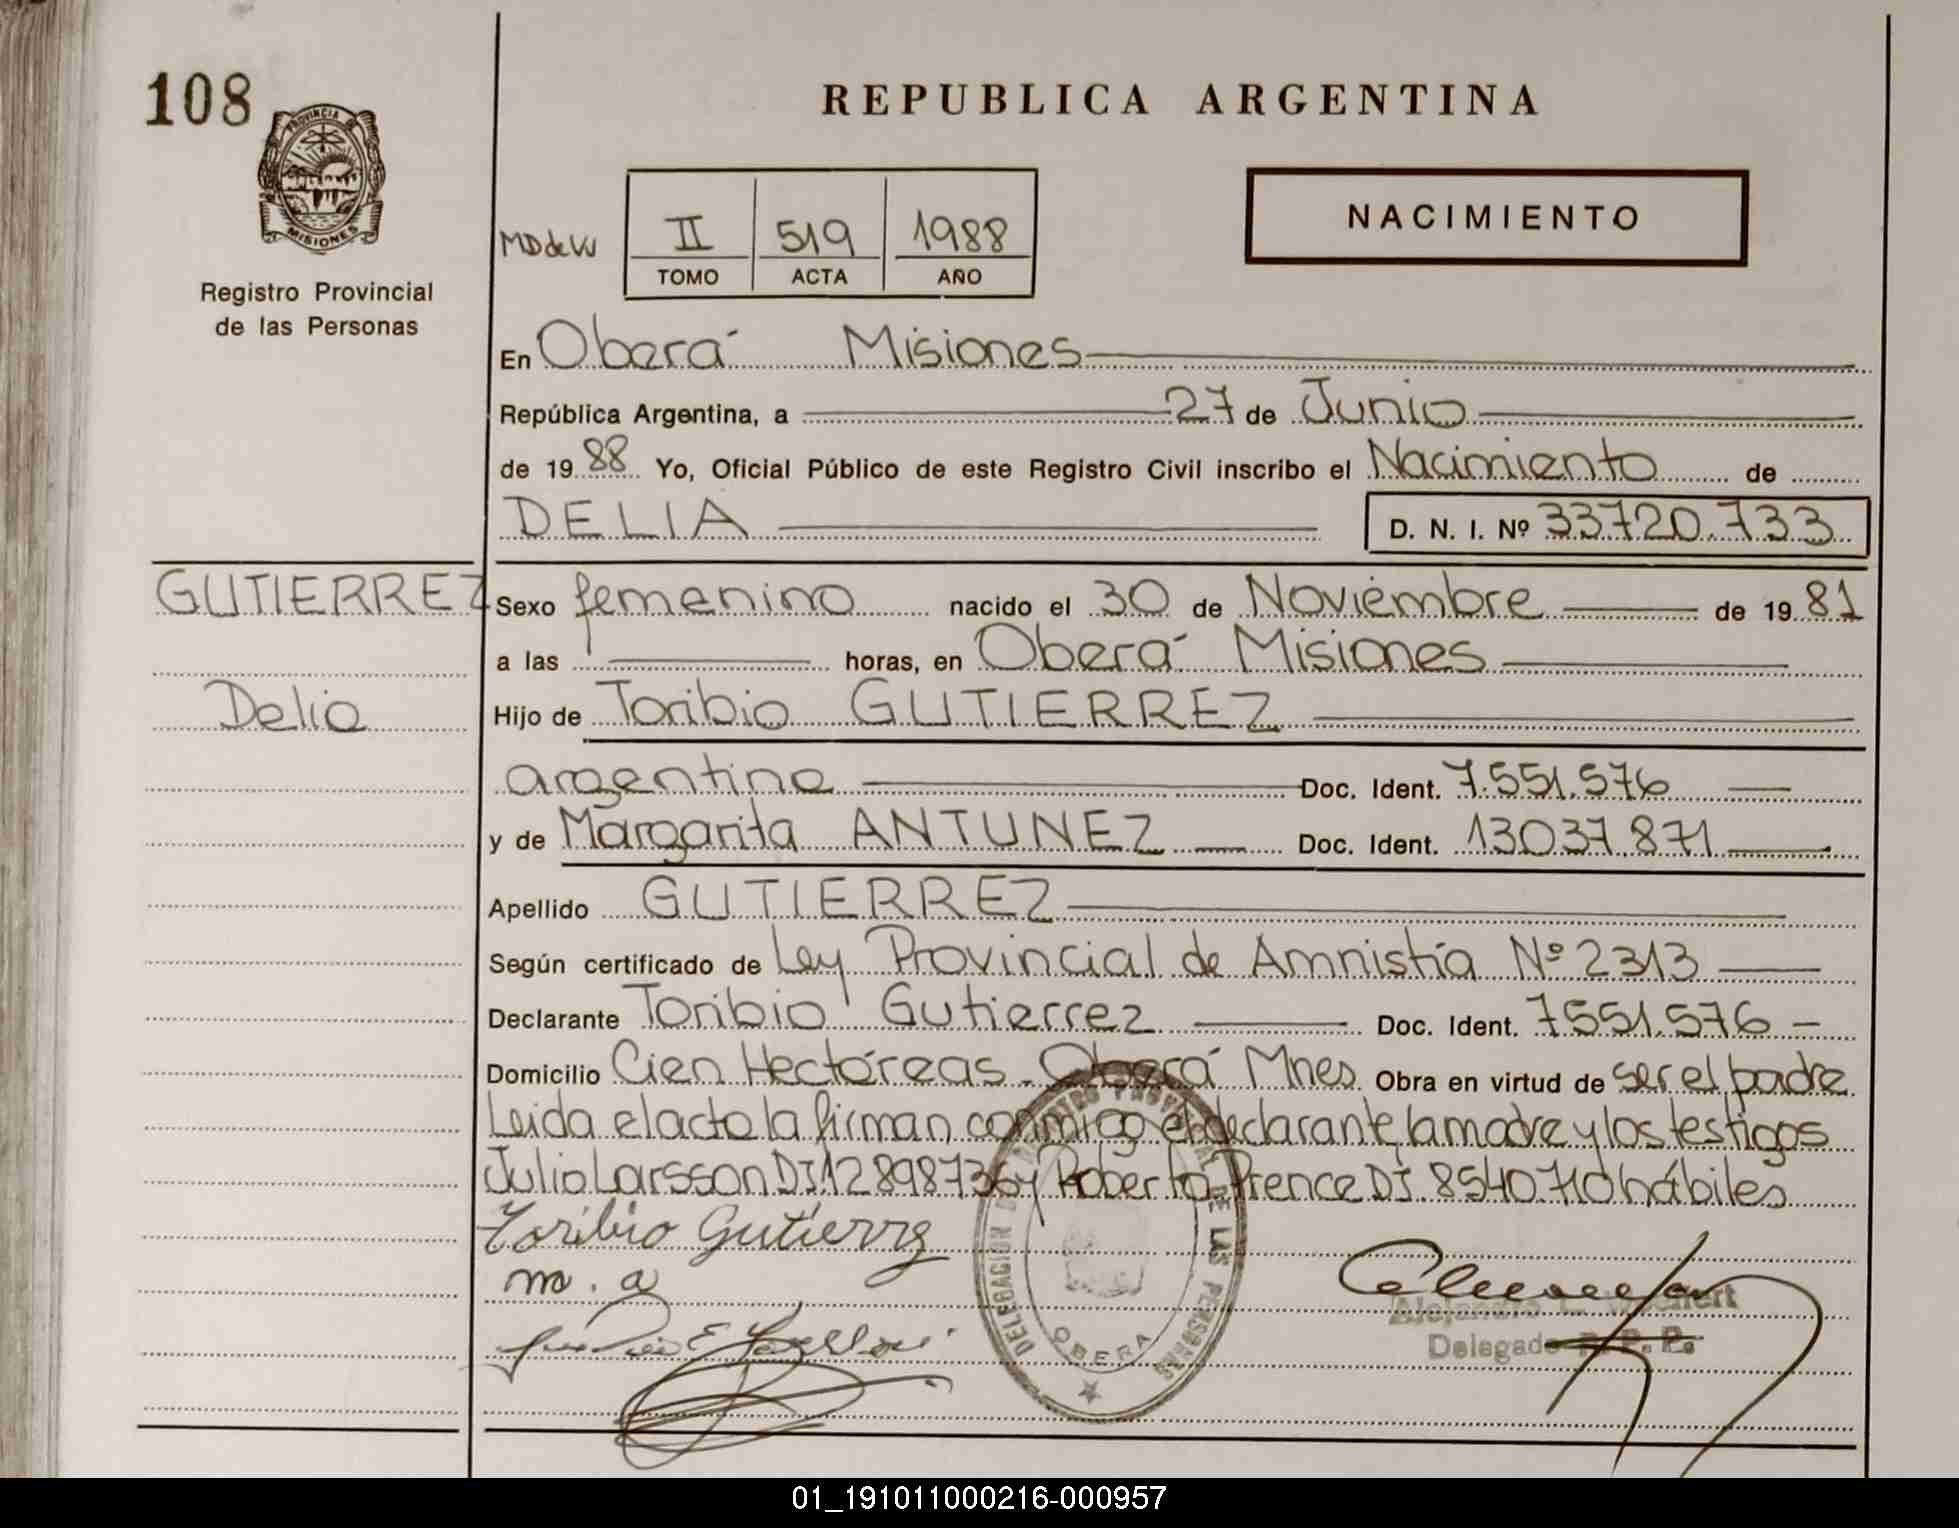 108
PROVINCIA DE
MISIONES
Registro Provincial
de las Personas
REPUBLICA ARGENTINA
NACIMIENTO
II 519 1988
TOMO ACTA AÑO
En Oberá Misiones
República Argentina, a 27 de Junio
de 19 88 Yo, Oficial Público de este Registro Civil inscribo el Nacimiento de
DELIA D. N. I. Nº 33720.733
GUTIERREZ
Delia
Sexo femenino nacido el 30 de Noviembre de 19 81
a las horas, en Oberá Misiones
Hijo de Toribio GUTIERREZ
argentino Doc. Ident. 7.551.576
y de Margarita ANTUNEZ Doc. Ident. 13037.871
Apellido GUTIERREZ
Según certificado de Ley Provincial de Amnistía Nº 2313
Declarante Toribio Gutierrez Doc. Ident. 7551.576
Domicilio Cien Hectóreas. Oberá Mnes Obra en virtud de ser el padre
Leida el acto la firman conmigo el declarante, la madre y los testigos
Julio Larsson DI 12898736 y Roberto Prence DI 8540710 hábiles
Toribio Gutierrez
m. a
DELEGACION REGISTRO PROVINCIAL DE LAS PERSONAS
OBERA
Delegado R. P. P.
01_191011000216-000957